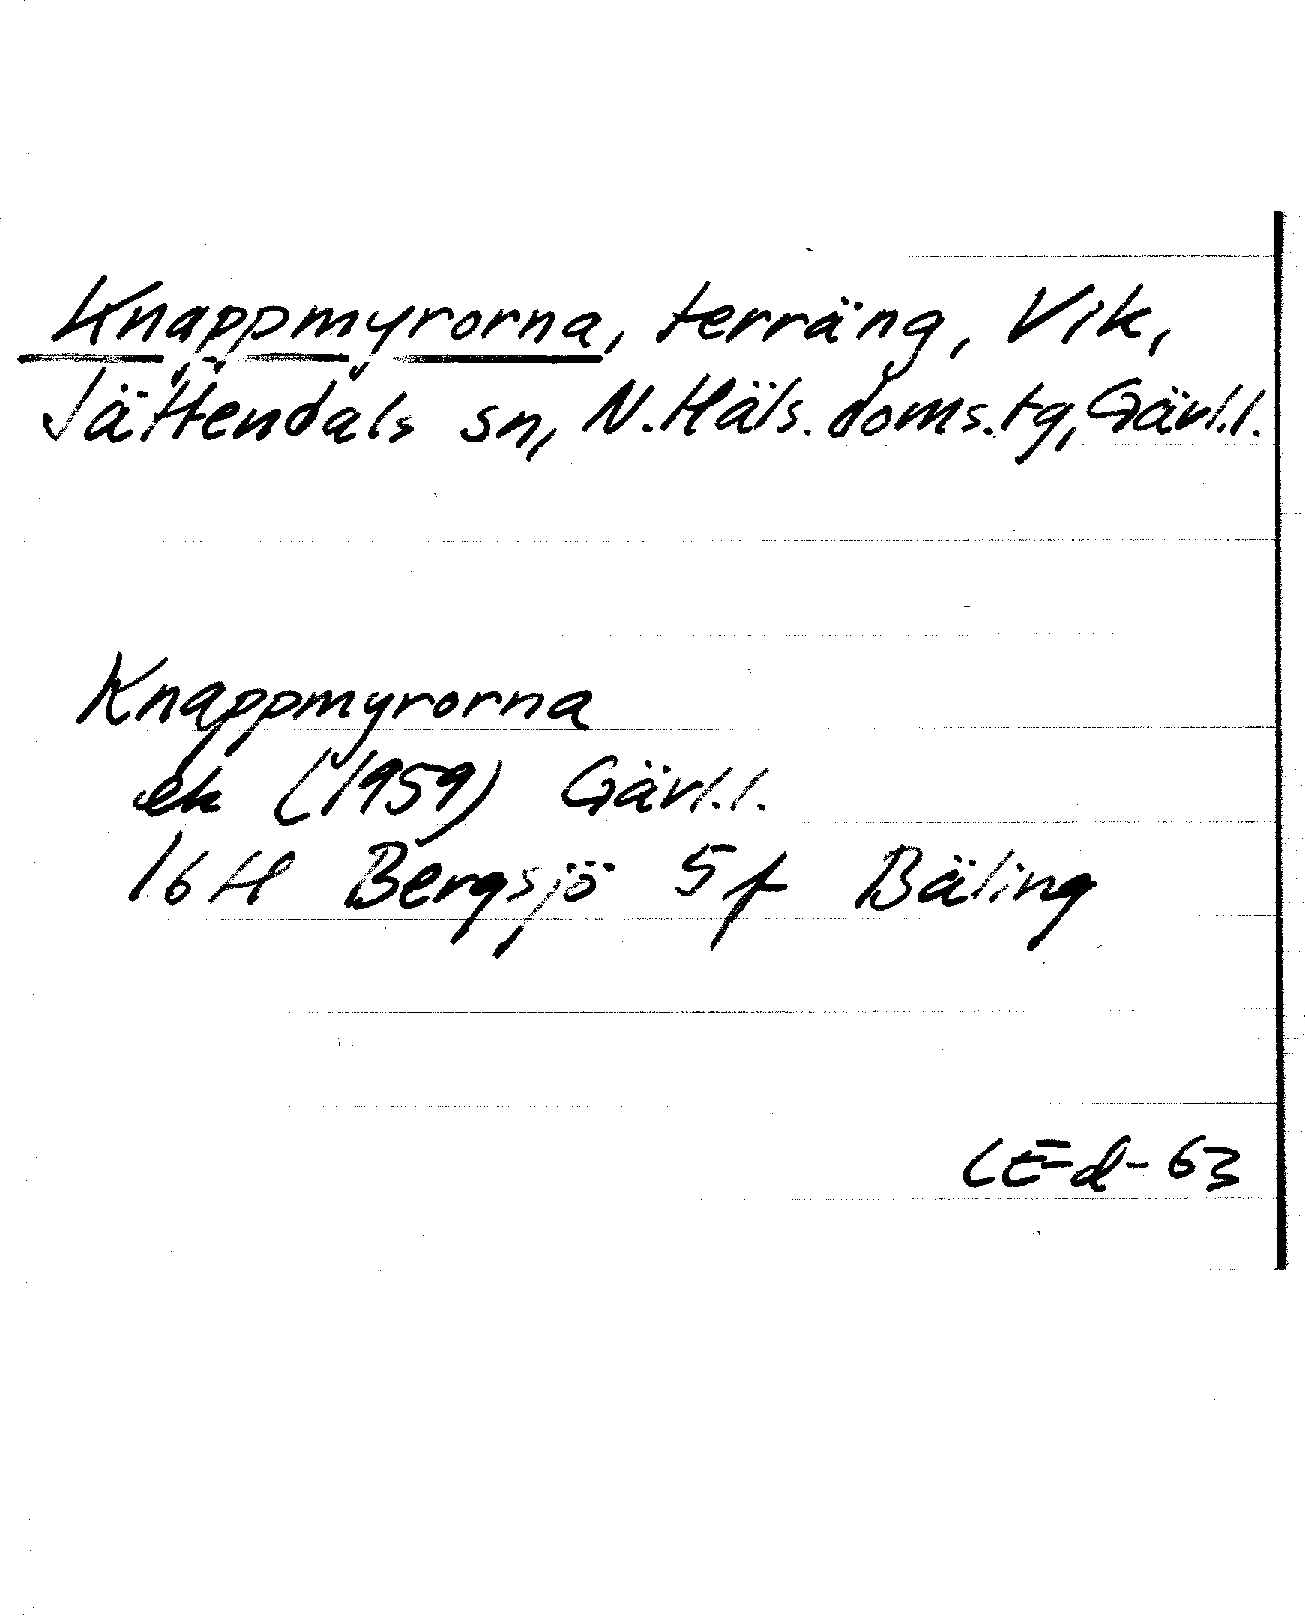 Knappmyrorna, terräng, Vik,
Jättendals sn, N.Häls.doms.tg, Gävl.l.
Knappmyrorna
ek (1959) Gävl.l.
16H Bergsjö 5f Bäling
CE-d-63